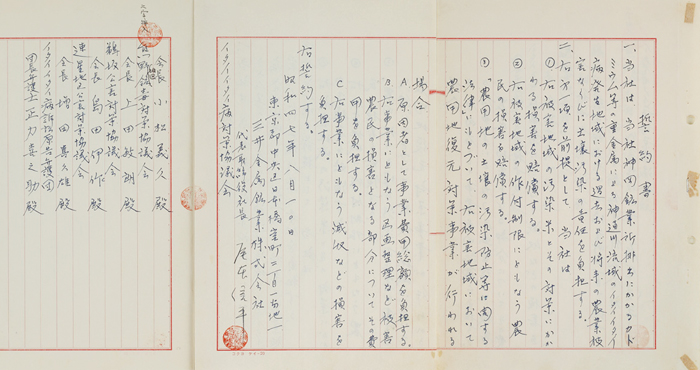 誓約書
一、当社は、当社神岡鉱業所排出にかかるカド
ミウム等の重金属による神通川流域のイタイイタイ
病発生地域における過去および将来の農業被
害ならびに土壌汚染の責任を負担する。
二、右第一項を前提として、当社は
①右被害地域の汚染米とその対策にかか
わる損害を賠償する。
②右被害地域の作付制限にともなう農
民の損害を賠償する。
③「農用地の土壌の汚染防止等に関する
法律」にもとづいて、右被害地域において
農用地復元対策事業が行われる
場合
A 原因者として事業費用総額を負担する。
B 右事業にともなう区画整理など被害
農民の損害となる部分についてその費
用を負担する。
C 右事業にともなう減収などの損害を
負担する。
右誓約する。
昭和四七年八月一〇日
東京都中央区日本橋室町二丁目一番地一
三井金属鉱業株式会社
代表取締役社長 尾本信平
イタイイタイ病対策協議会
会長 小松義久殿
熊野鉱害対策協議会
会長 上田敏朗殿
鵜坂公害対策協議会
会長 島田伊作殿
速星地区公害対策協議会
会長 増田 久雄殿
イタイイタイ病訴訟原告弁護団
団長弁護士 正力喜之助殿